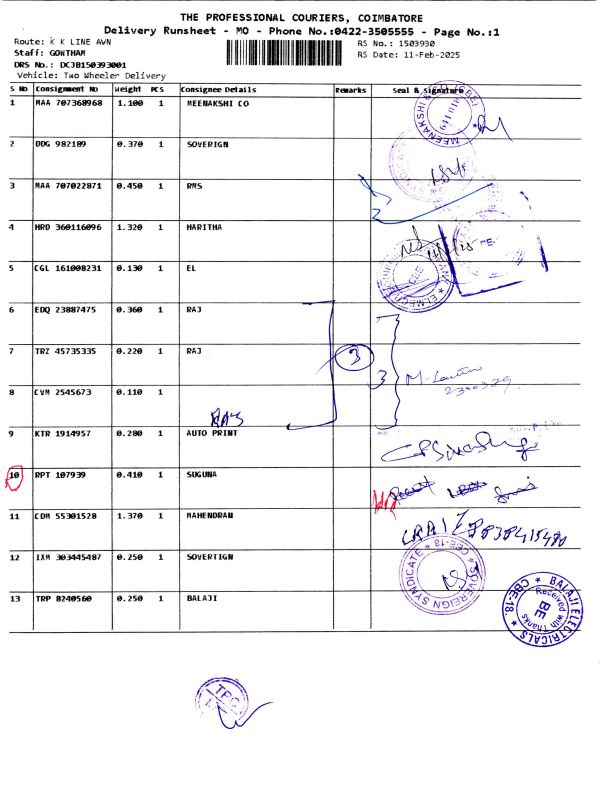 THE PROFESSIONAL COURIERS, COIMBATORE
Delivery Runsheet - MO - Phone No.:0422-3505555 - Page No.:1
Route: K K LINE AWN
RS No.: 1503930
Staff: GOWTHAM
RS Date: 11-Feb-2025
DRS No.: DCJB150393001
Vehicle: Two Wheeler Delivery
S No Consignment No Weight PCS Consignee Details Remarks Seal & Signature
1 MAA 707368968 1.100 1 MEENAKSHI CO
2 DDG 982189 0.370 1 SOVERIGN
3 MAA 707022871 0.450 1 RMS
4 HRD 360116096 1.320 1 HARITHA
5 CGL 161008231 0.130 1 EL
CBE
6 EDQ 23887475 0.360 1 RAJ
7 TRZ 45735335 0.220 1 RAJ 3 3
8 CVM 2545673 0.110 1
9 KTR 1914957 0.280 1 AUTO PRINT
10 RPT 107939 0.410 1 SUGUNA
11 CDM 55301528 1.370 1 MAHENDRAN
12 IXM 303445487 0.250 1 SOVERTIGN
SOVEREIGN SYNDICATE ★ CBE-18 ★
13 TRP 8240560 0.250 1 BALAJI
BALAJI ELECTRICALS ★ CBE-18. ★
Received with Thanks
BE